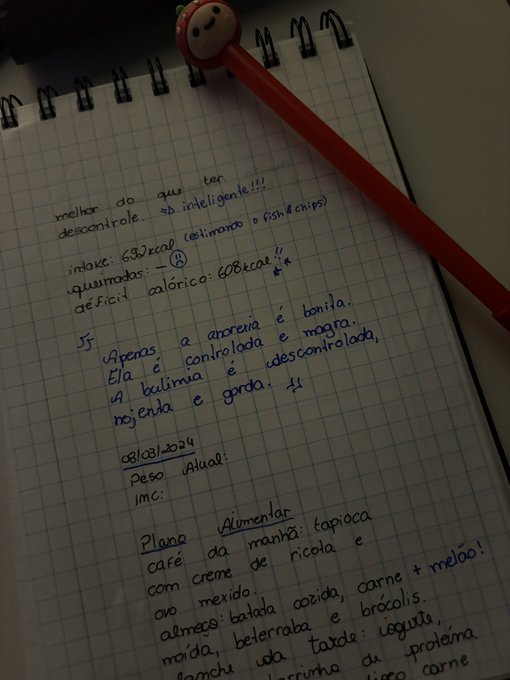 melhor do que ter
descontrole. => inteligente!!!
intake: 692kcal (estimando o fish & chips)
queimadas: —
déficit calórico: 608kcal!!
"Apenas a anorexia é bonita.
Ela é controlada e magra.
A bulimia é descontrolada,
nojenta e gorda."
08/03/2024
Peso Atual:
IMC:
Plano Alimentar
café da manhã: tapioca
com creme de ricota e
ovo mexido.
almoço: batata cozida, carne + melão!
moída, beterraba e brócolis.
lanche da tarde: iogurte,
barrinha de proteína
carne